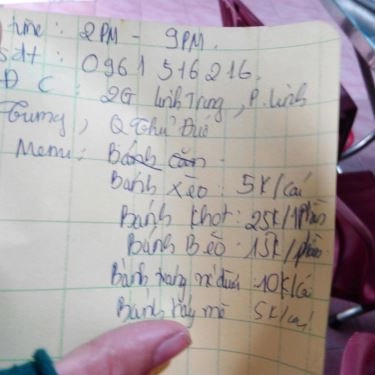 time: 2PM - 9PM.
sdt: 0961 516 216.
ĐC: 2G Linh Trung, P. Linh
Trung, Q Thủ Đức
Menu: Bánh căn
Bánh xèo: 5K/cái
Bánh khọt: 25K/1phần
Bánh Bèo: 15K/phần
Bánh tráng mè dừa 10K/cá
Bánh mè 5K/cái